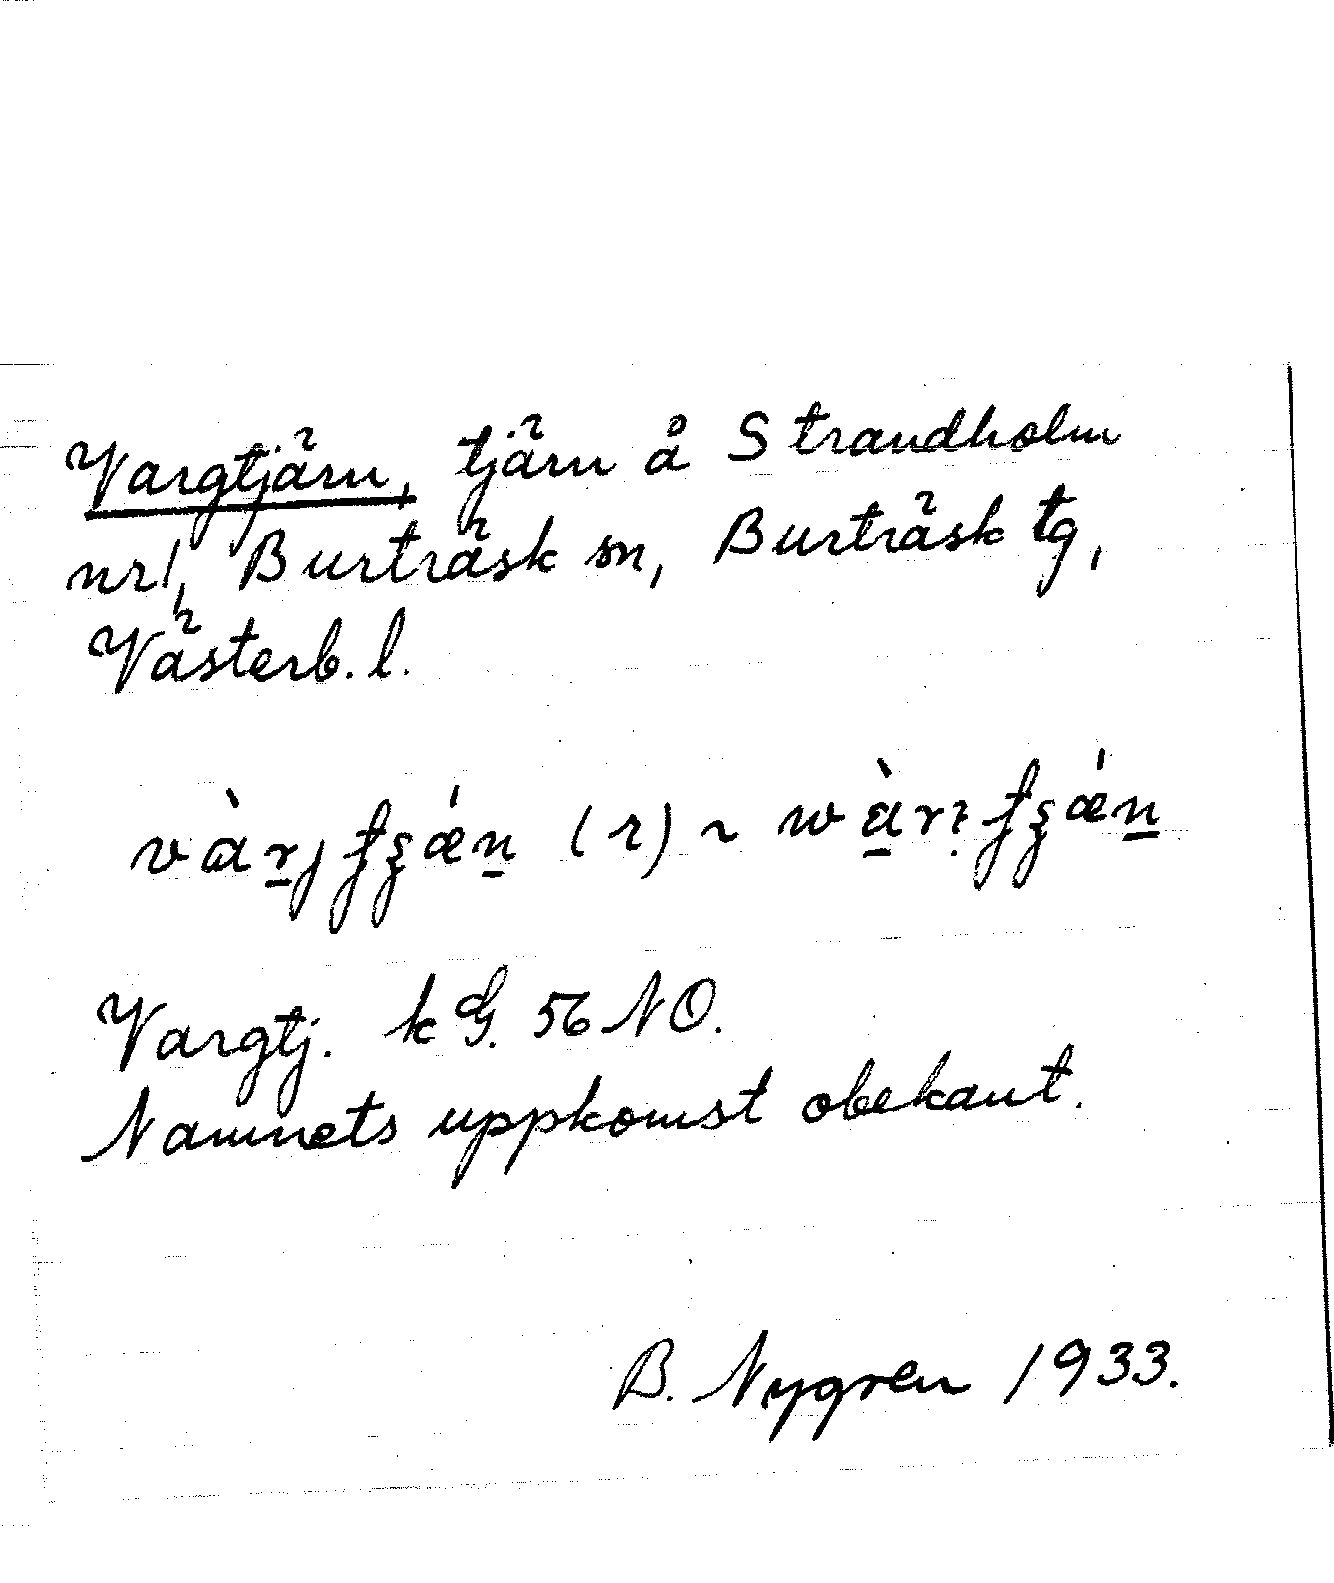 Vargtjärn, tjärn å Strandholm
nr1, Burträsk sn, Burträsk tg,
Västerb. l.
(r) ~
Vargtj. kG. 56 NO.
Namnets uppkomst obekant.
B. Nygren 1933.